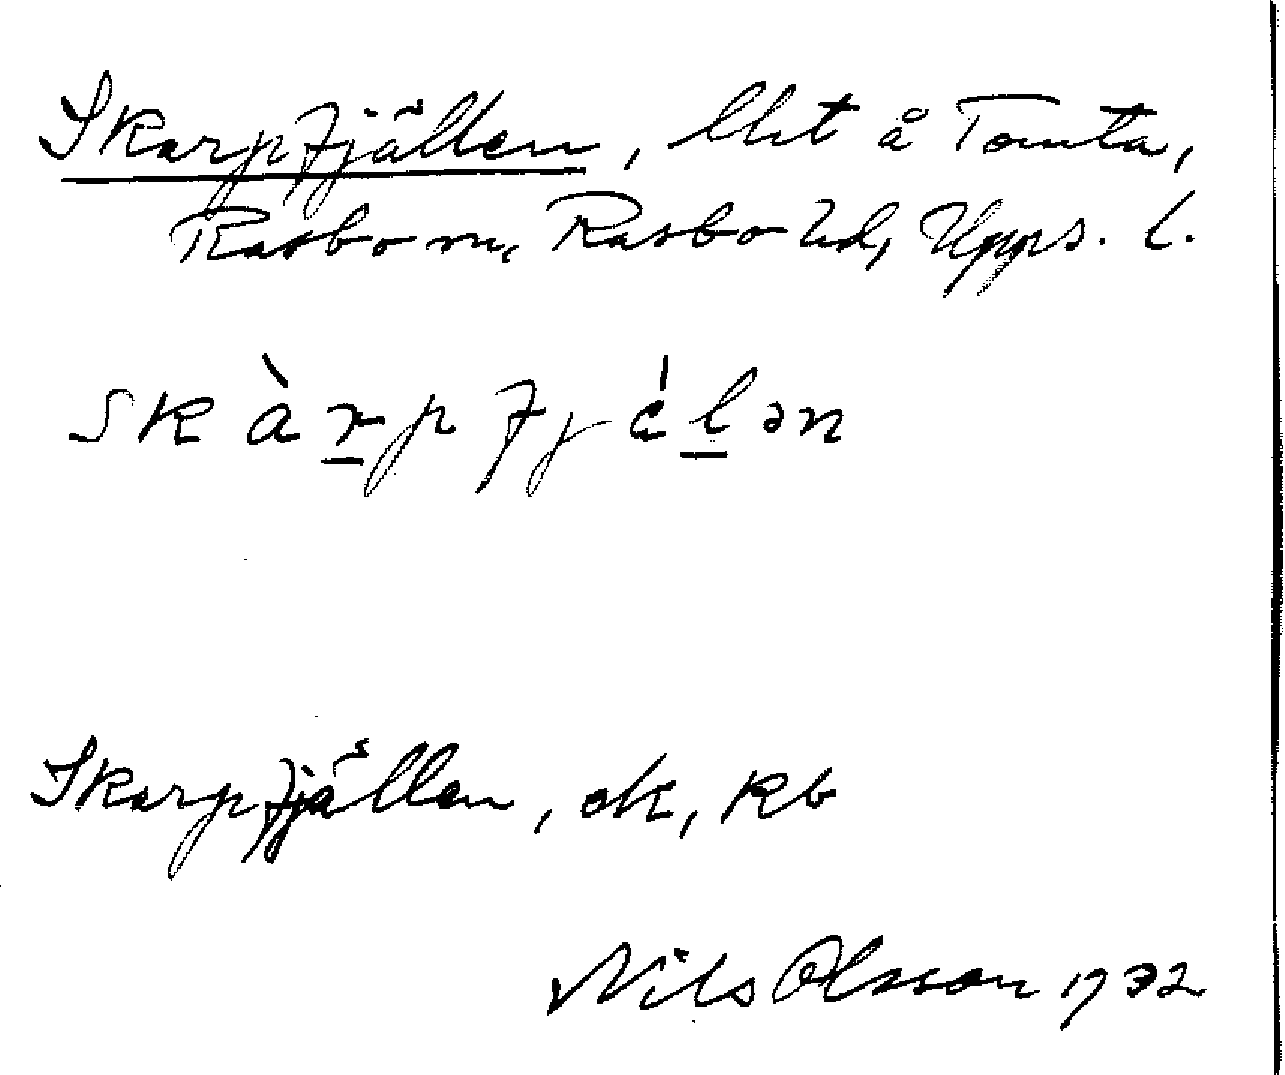 Skarpfjällen, lht å Tomta,
Rasbo sn, Rasbo hd, Upps. l.
skàrpfjɛ́lən
Skarpfjällen, ek, kb
Nils Olsson 1932